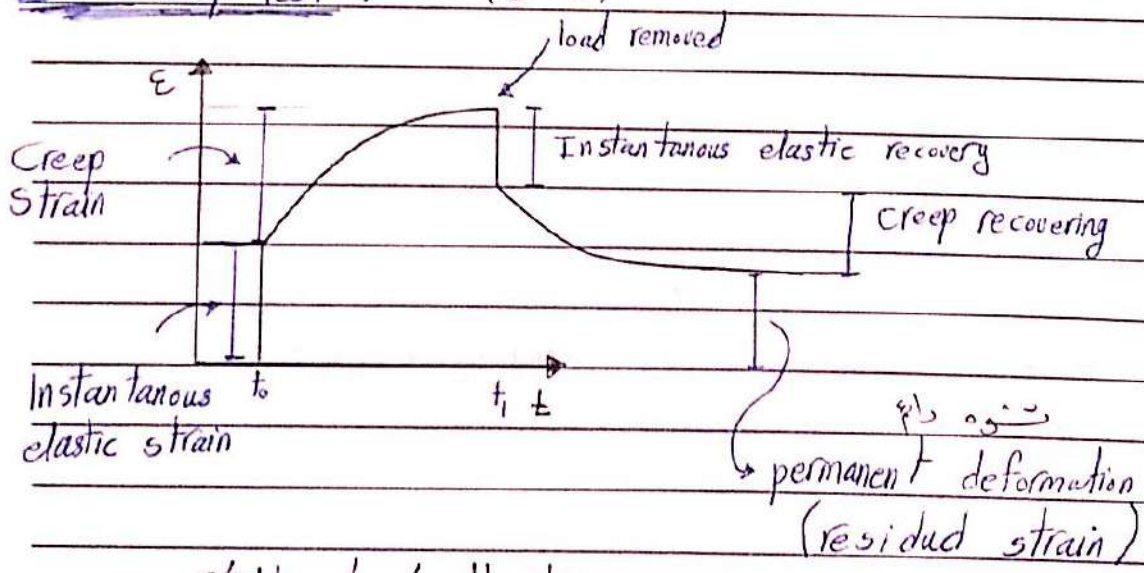 load removed
ε
Creep
Strain
Instantanous elastic recovery
Creep recovering
Instantanous
elastic strain
t₀
t₁ t
تشوه دائم
permanent deformation
(residual strain)